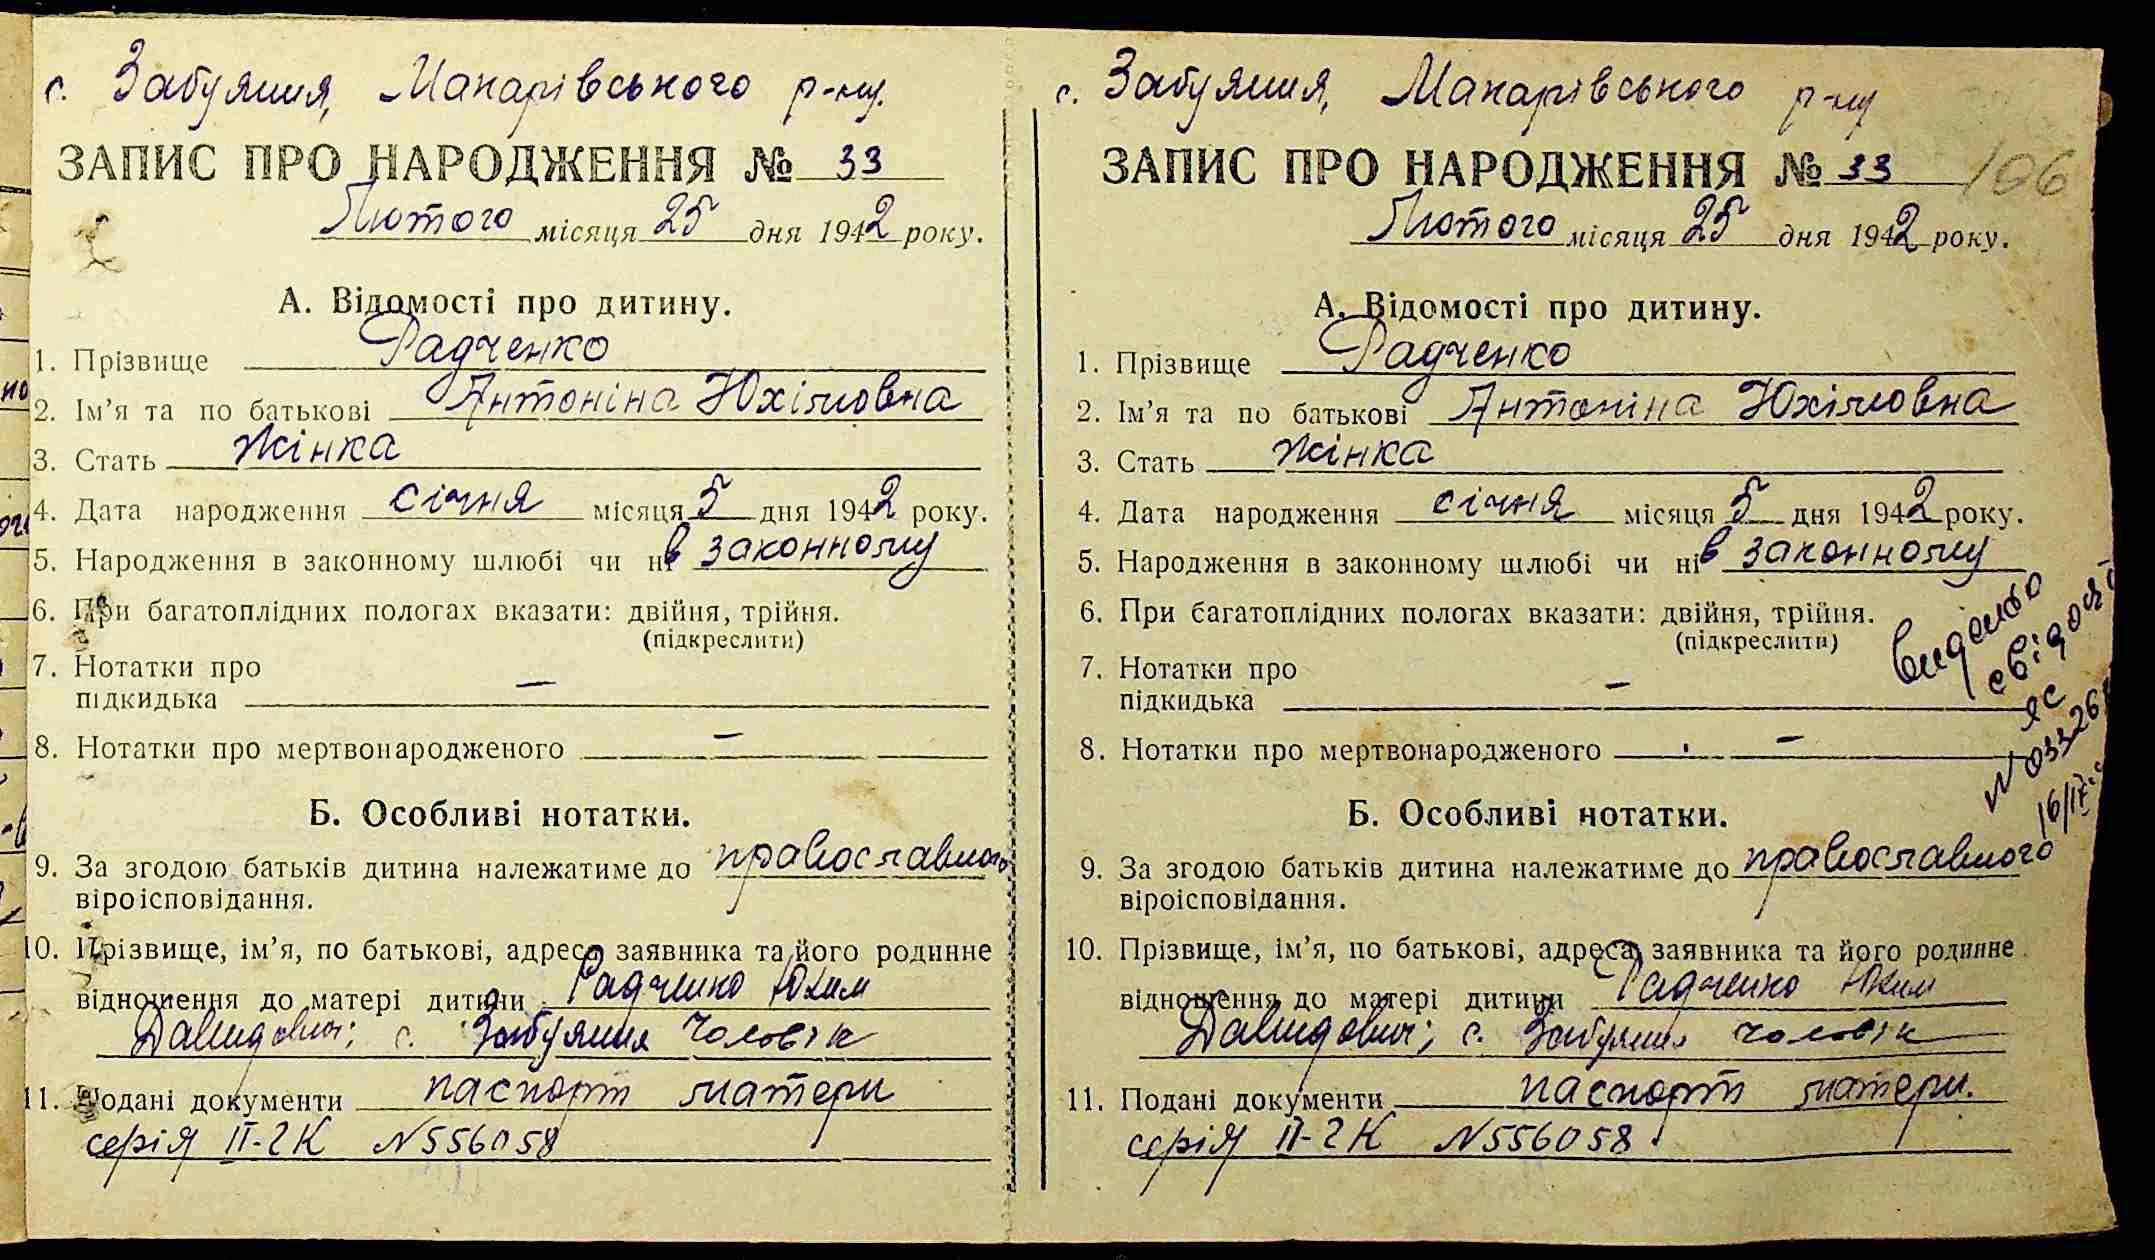 с. Забуяння, Макарівського р-ну.
ЗАПИС ПРО НАРОДЖЕННЯ № 33
Лютого місяця 25 дня 1942 року.
А. Відомості про дитину.
1. Прізвище Радченко
2. Ім'я та по батькові Антоніна Юхімовна
3. Стать жінка
4. Дата народження січня місяця 5 дня 1942 року.
5. Народження в законному шлюбі чи ні в законному
6. При багатоплідних пологах вказати: двійня, трійня.
(підкреслити)
7. Нотатки про
підкидька —
8. Нотатки про мертвонародженого —
Б. Особливі нотатки.
9. За згодою батьків дитина належатиме до православного
віроісповідання.
10. Прізвище, ім'я, по батькові, адреса заявника та його родинне
відношення до матері дитини Радченко Юхим
Давидович; с. Забуяння чоловік
11. Подані документи паспорт матери
серія II-2К N 556058
с. Забуяння, Макарівського р-ну
ЗАПИС ПРО НАРОДЖЕННЯ № 33 106
Лютого місяця 25 дня 1942 року.
А. Відомості про дитину.
1. Прізвище Радченко
2. Ім'я та по батькові Антоніна Юхімовна
3. Стать жінка
4. Дата народження січня місяця 5 дня 1942 року.
5. Народження в законному шлюбі чи ні в законному
6. При багатоплідних пологах вказати: двійня, трійня.
(підкреслити)
7. Нотатки про
підкидька —
8. Нотатки про мертвонародженого —
видано
свідоц
ЯС
N 03326
16/IV
Б. Особливі нотатки.
9. За згодою батьків дитина належатиме до православного
віроісповідання.
10. Прізвище, ім'я, по батькові, адреса заявника та його родинне
відношення до матері дитини Радченко Юхим
Давидович; с. Забуяння чоловік
11. Подані документи паспорт матери.
серія II-2К N 556058